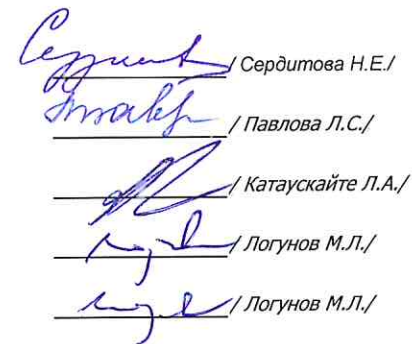 / Сердитова Н.Е./
/ Павлова Л.С./
/ Катаускайте Л.А./
/ Логунов М.Л./
/ Логунов М.Л./